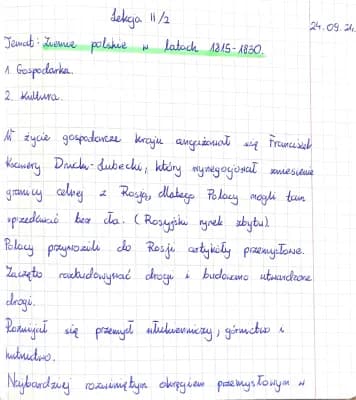 Lekcja 11/2
24.09.24.
Temat: Ziemie polskie w latach 1815-1830.
1. Gospodarka.
2. Kultura.
W życie gospodarcze kraju angażował się Franciszek
Ksawery Druck-Lubecki, który wynegocjował zniesienie
granicy celnej z Rosją, dlatego Polacy mogli tam
sprzedawać bez cła. (Rosyjski rynek zbytu)
Polacy przywozili do Rosji artykuły przemysłowe.
Zaczęto rozbudowywać drogi i budowano utwardzone
drogi.
Rozwijał się przemysł włókienniczy, górnictwo i
hutnictwo.
Najbardziej rozwiniętym okręgiem przemysłowym w